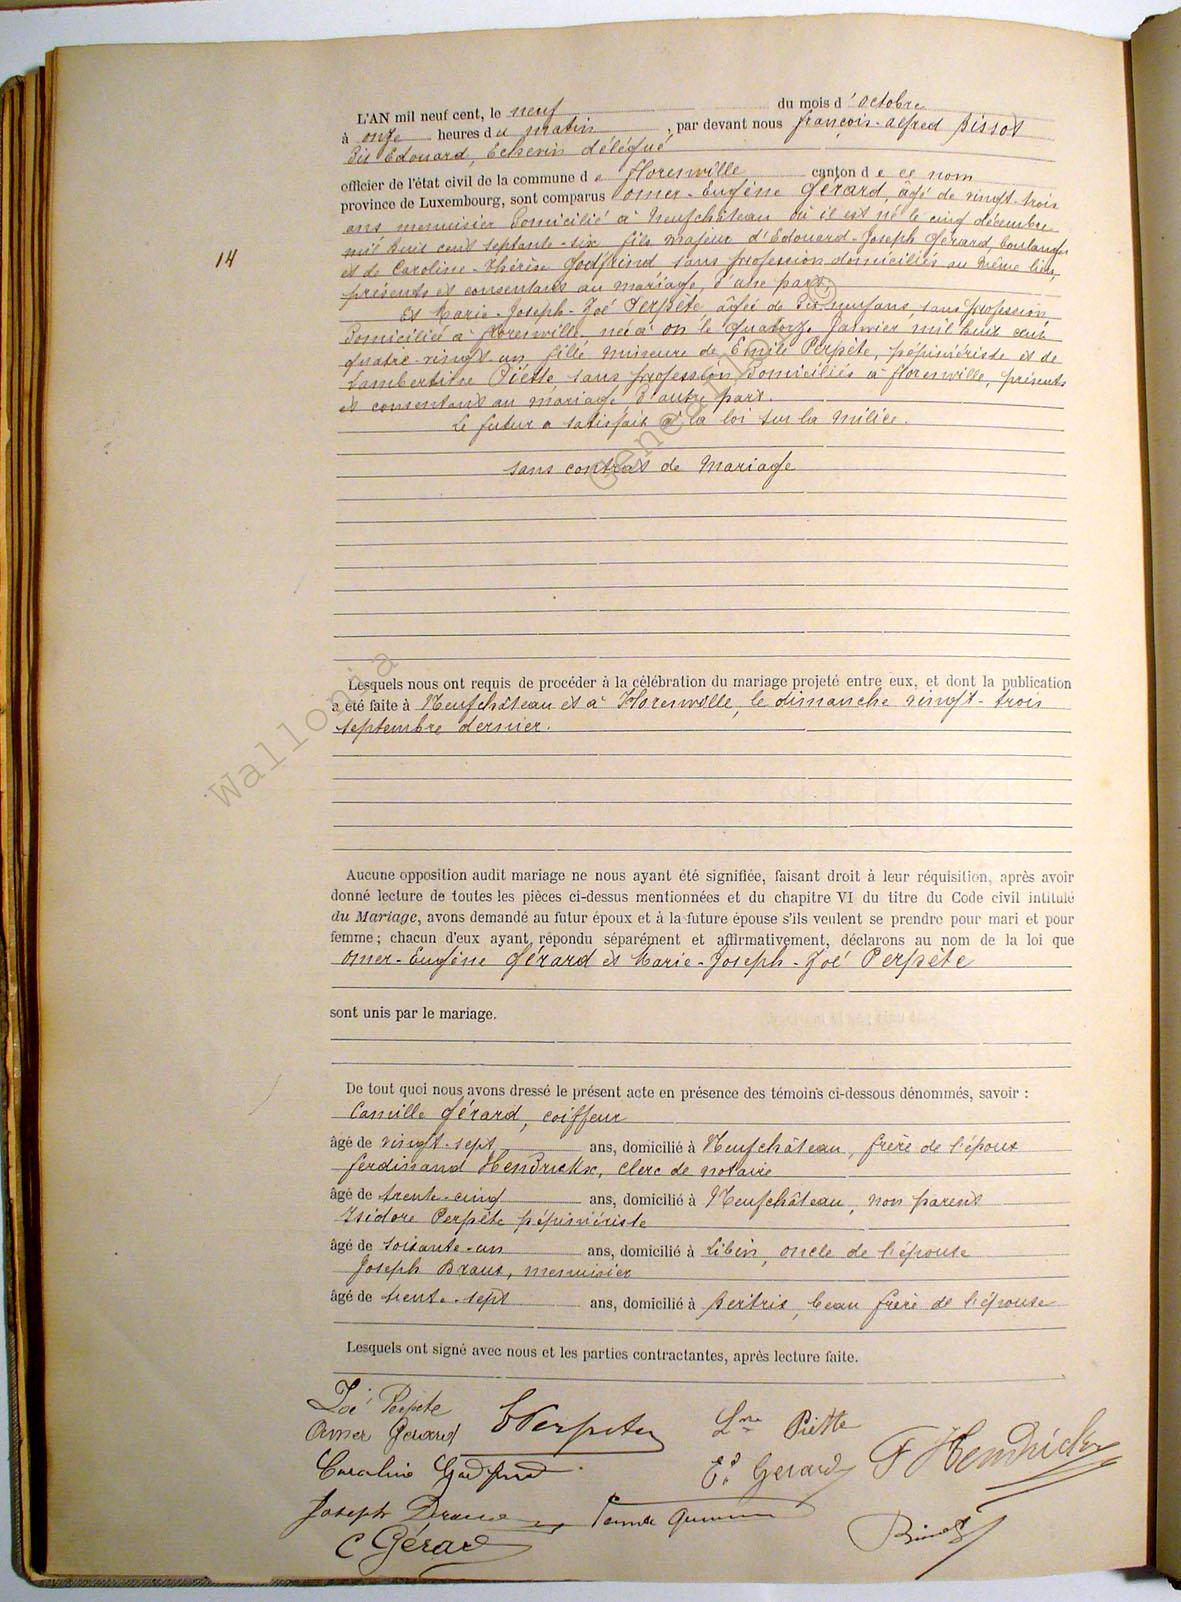 L'AN mil neuf cent, le neuf du mois d'octobre
à onze heures du matin, par devant nous françois-alfred Bissot
Dit Edouard, Echevin délégué
officier de l'état civil de la commune de florenville canton de ce nom
province de Luxembourg, sont comparus omer-Eugène Gérard, âgé de vingt-trois
ans menuisier Domicilié à Neufchâteau où il est né le cinq décembre
mil huit cent septante-six fils majeur d'Edouard-Joseph Gérard, boulanger
14
et de Caroline-Thérèse Godfrind sans profession domiciliés au même lieu,
présents et consentans au mariage, d'une part
Et Marie-Joseph-Zoé Perpète âgée de Dix-neuf ans, sans profession
Domiciliée à florenville, née à on le quatorze Janvier mil huit cent
quatre-vingt-un, fille mineure de Emile Perpète, pépiniériste et de
Lambertine Piette, sans profession Domiciliés à florenville, présents
et consentans au mariage D'autre part.
Le futur a satisfait à la loi sur la milice.
sans contrat de Mariage
Lesquels nous ont requis de procéder à la célébration du mariage projeté entre eux, et dont la publication
a été faite à Neufchâteau et à Florenville, le dimanche vingt-trois
septembre dernier.
Aucune opposition audit mariage ne nous ayant été signifiée, faisant droit à leur réquisition, après avoir
donné lecture de toutes les pièces ci-dessus mentionnées et du chapitre VI du titre du Code civil intitulé
du Mariage, avons demandé au futur époux et à la future épouse s'ils veulent se prendre pour mari et pour
femme; chacun d'eux ayant répondu séparément et affirmativement, déclarons au nom de la loi que
omer-Eugène Gérard et Marie-Joseph-Zoé Perpète
sont unis par le mariage.
De tout quoi nous avons dressé le présent acte en présence des témoins ci-dessous dénommés, savoir :
Camille Gérard, coiffeur
âgé de vingt-sept ans, domicilié à Neufchâteau, frère de l'époux
ferdinand Hendrickx, clerc de notaire
âgé de trente-cinq ans, domicilié à Neufchâteau, non parent
Isidore Perpète pépiniériste
âgé de soixante-un ans, domicilié à Libin, oncle de l'épouse
Joseph Draux, menuisier
âgé de trente-sept ans, domicilié à Bertrix, beau frère de l'épouse
Lesquels ont signé avec nous et les parties contractantes, après lecture faite.
Zoé Perpète
Omer Gérard E Perpète Lne Piette
F Hendrickx
Caroline Godfrind Ed Gerard
Joseph Draux
C Gérard
Wallonia Genealogy ©